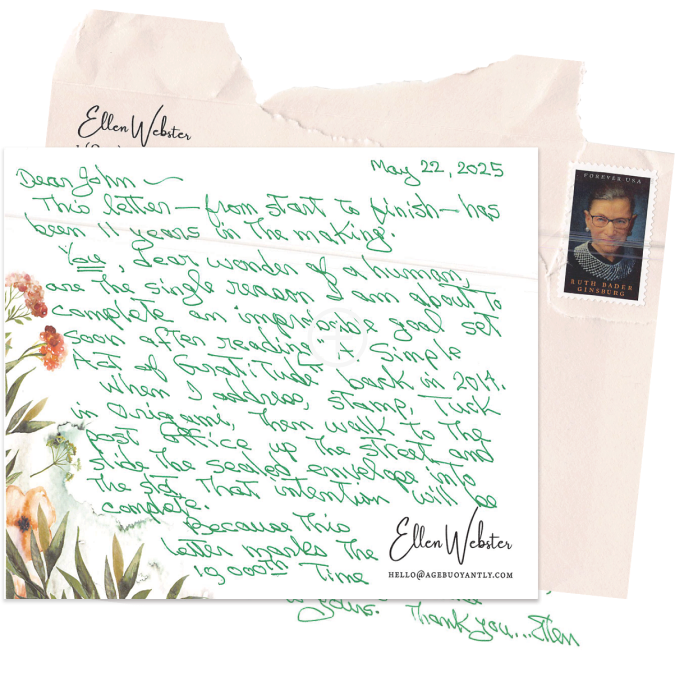 Ellen Webster
FOREVER USA
RUTH BADER
GINSBURG
May 22, 2025
Dear John
This letter—from start to finish—has
been 11 years in the making.
You, dear wonder of a human,
are the single reason I am about to
complete an improbable goal set
soon after reading "A Simple
Act of Gratitude" back in 2014.
When I address, stamp, tuck
in origami, then walk to the
post office up the street and
slide the sealed envelope into
the slot, that intention will be
complete.
Because this
letter marks the
10,000th time
Ellen Webster
HELLO@AGEBUOYANTLY.COM
is yours. Thank you...Ellen